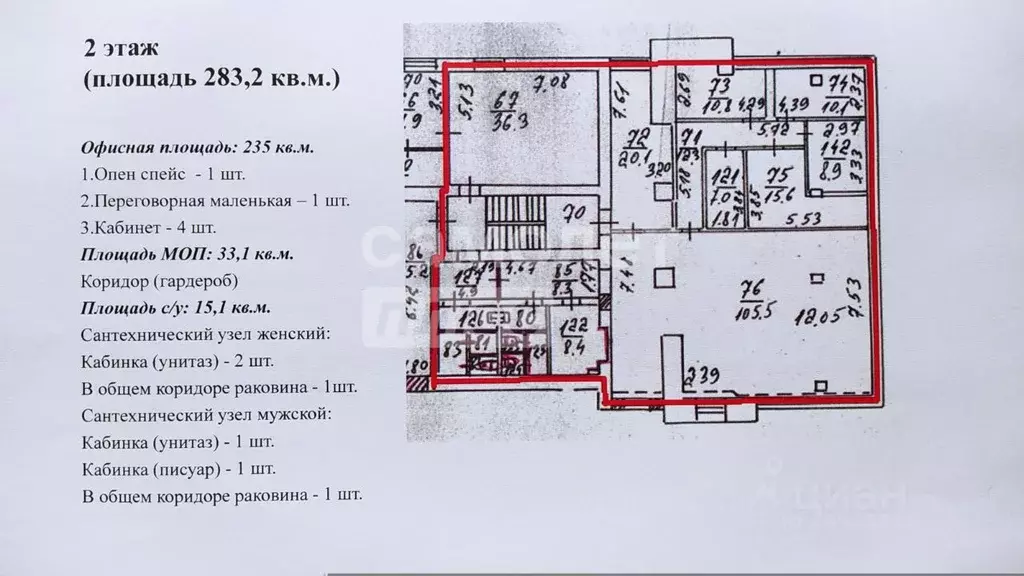 2 этаж
(площадь 283,2 кв.м.)
Офисная площадь: 235 кв.м.
1.Опен спейс - 1 шт.
2.Переговорная маленькая – 1 шт.
3.Кабинет - 4 шт.
Площадь МОП: 33,1 кв.м.
Коридор (гардероб)
Площадь с/у: 15,1 кв.м.
Сантехнический узел женский:
Кабинка (унитаз) - 2 шт.
В общем коридоре раковина - 1шт.
Сантехнический узел мужской:
Кабинка (унитаз) - 1 шт.
Кабинка (писуар) - 1 шт.
В общем коридоре раковина - 1 шт.
70
3,21
5.13
7.08
67
36.3
7.61
2.69
73
10.8
4.29
74
4.39
10.1
2.37
72
20.1
3.20
71
5.72
2.97
142
8.9
3.33
5.18
121
7.0
1.81
3.85
75
15.6
5.53
70
86
5.2
6.92
127
14.9
4.67
85
8.3
1.77
7.41
76
105,5
12.05
9.53
126
80
122
8.4
83
81
.80
2.39
самолет
плюс
циан